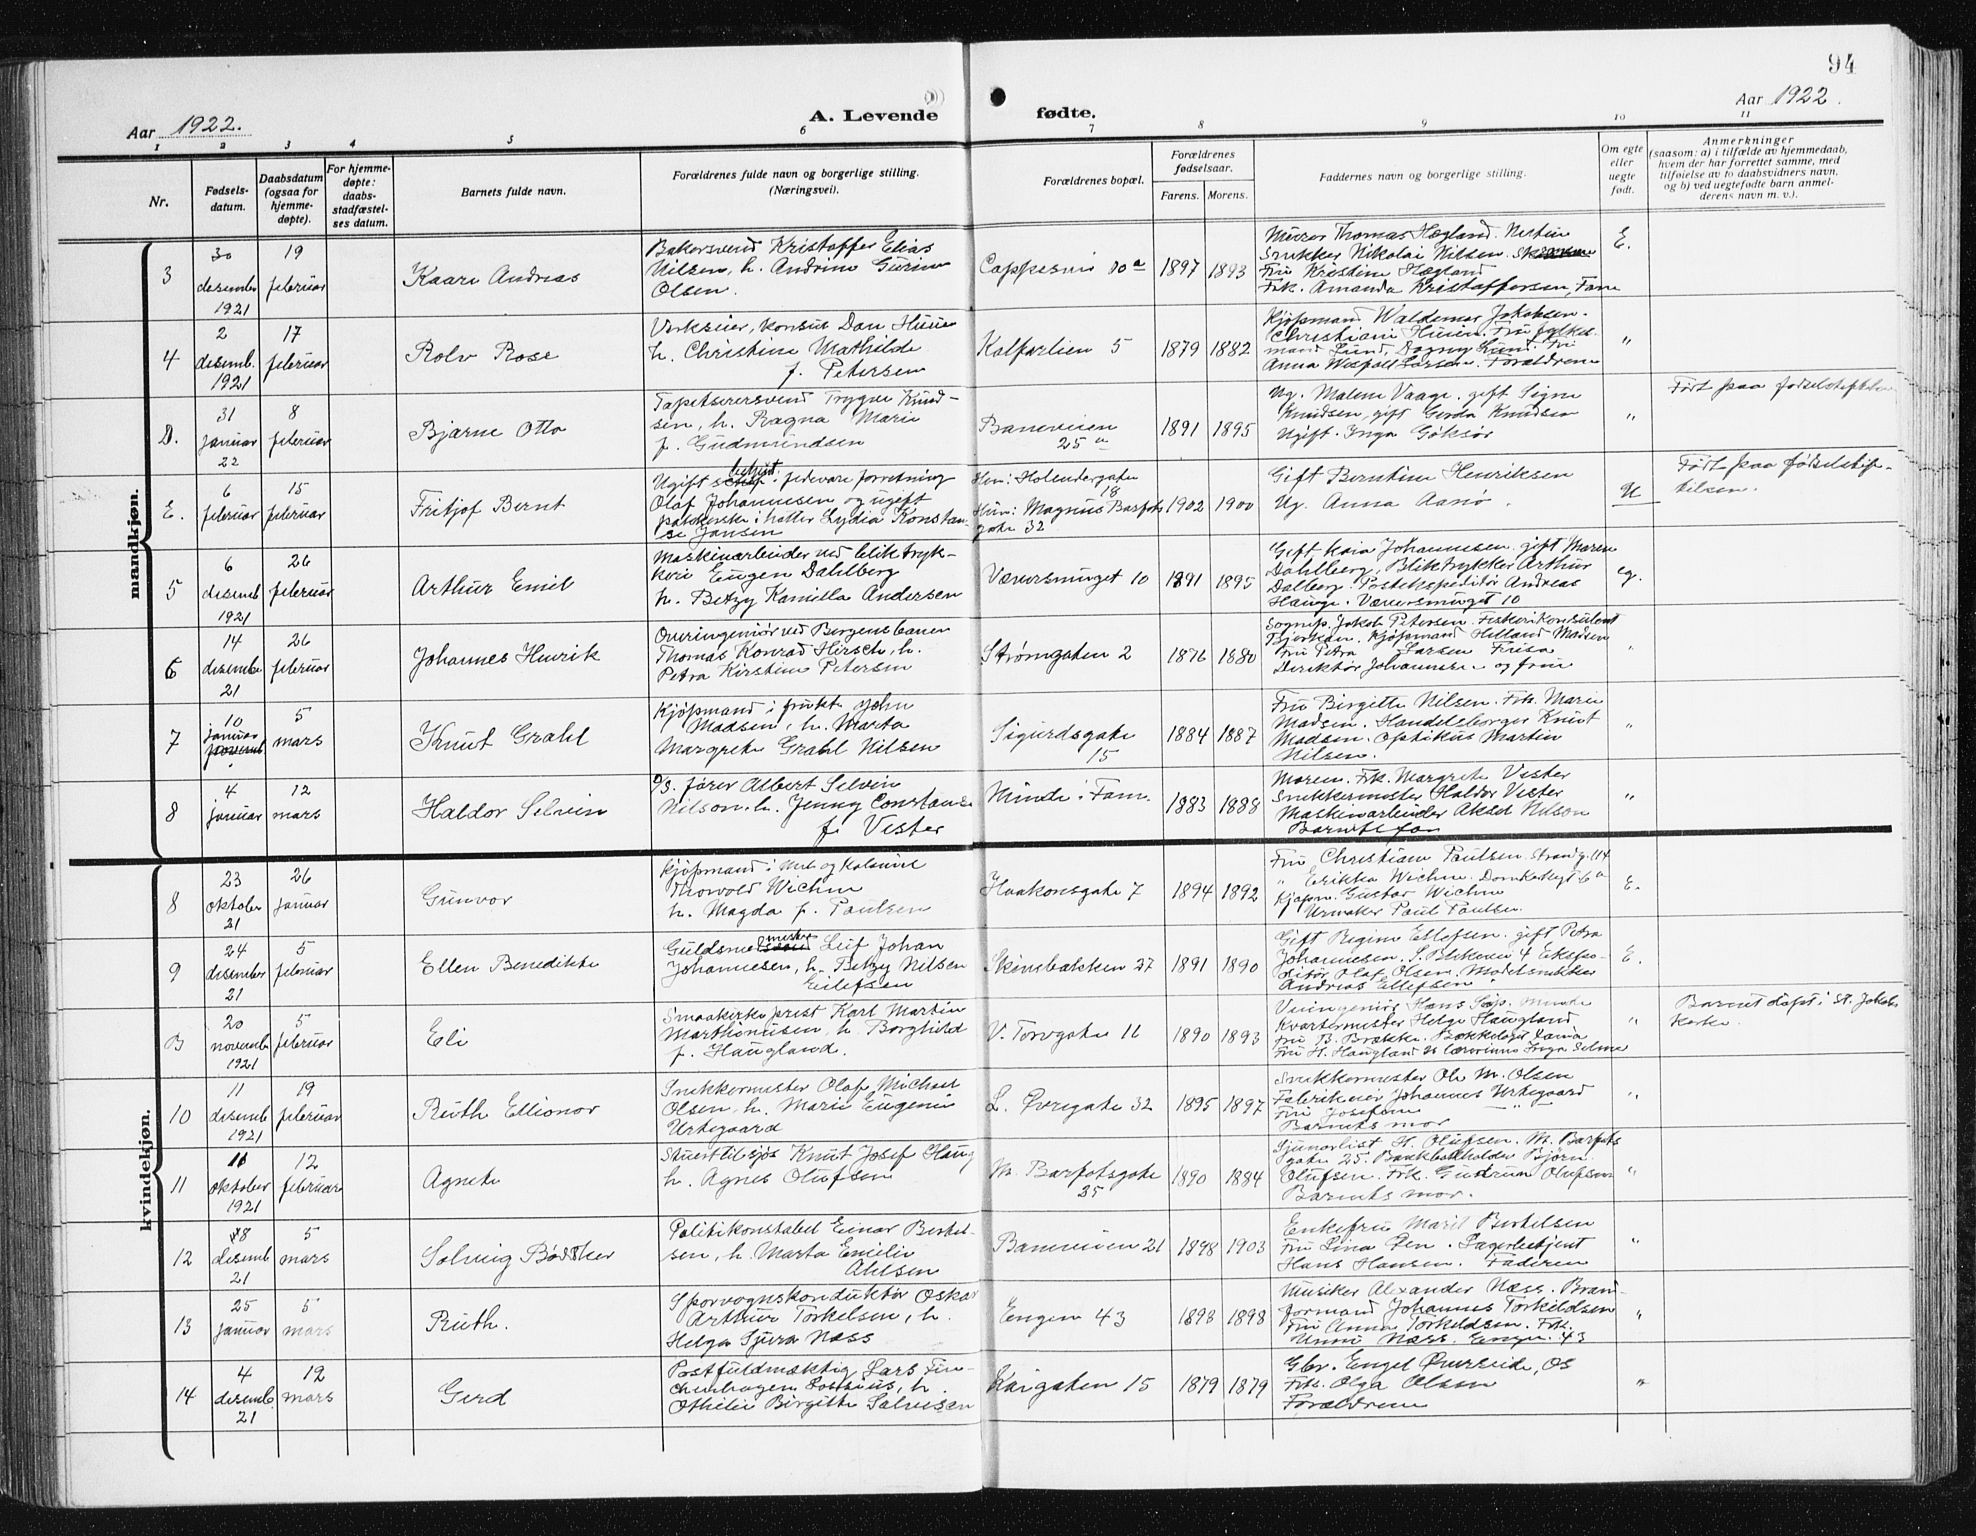 94
Aar 1922.
A. Levende
fødte.
Aar 1922.
1 2 3 4 5 6 7 8 9 10 11
Nr.
Fødsels-
datum.
Daabsdatum
(ogsaa for
hjemme-
døpte).
For hjemme-
døpte:
daabs-
stadfæstel-
ses datum.
Barnets fulde navn.
Forældrenes fulde navn og borgerlige stilling.
(Næringsvei).
Forældrenes bopæl.
Forældrenes
fødselsaar.
Farens. Morens.
Faddernes navn og borgerlige stilling.
Om egte
eller
uegte
født.
Anmerkninger
(saasom: a) i tilfælde av hjemmedaab,
hvem der har forrettet samme, med
tilføielse av to daabsvidners navn,
og b) ved uegtefødte barn anmel-
derens navn m. v.).
mandkjøn.
3
30
desember
1921
19
februar
Kaare Andreas
Bakersvend Kristoffer Elias
Nilsen, h. Andrine Gurine
Olsen.
1897 1893
Murer Thomas Hægland.
Snekker Nikolai Nilsen.
Fru Kristine Hægland
Frk. Amanda Kristoffersen,
E.
4
2
desemb.
1921
17
februar
Rolv Rose
Verkseier, konsul Dan
h. Christine Mathilde
f. Petersen
Kalfarlien 5
1879 1882
Kjøpmand Waldemar Jakobsen.
mand Lund, Dagny Lund. Fru
Forældrene
"
D.
31
januar
22
8
februar
Bjarne Otto
Tapetserersvend Trygve Knud-
sen, h. Ragna Marie
f. Gudmundsen
Baneveien
25 a
1891 1895
Ug. Malene Vaage. gift Signe
Knudsen, gift Gerda Knudsen
Ugift. Inga Göksör
"
Ført paa fødselsstiftelsen
E.
6
februar
15
februar
Fritjof Bernt
Ugift betjent i fedevareforretning
Olaf Johannesen og ugift
Lydia Konstan-
se Jansen
Ham: Holendergaten
18
Hun: Magnus Barfots
gate 32
1902 1900
Gift Berntine Henriksen
Ug. Anna Aanø
U
Ført paa fødselsstif-
telsen.
5
6
desemb
1921
26
februar
Arthur Emil
Maskinarbeider ved bliktryk-
keri Eugen Dahlberg
h. Betzy Kamilla Andersen
Væversmuget 10
1891 1895
Gift Kaia Johannesen. gift Maren
Dahlberg, Bliktrykker Arthur
Dalberg. Postekspeditør Andreas
Hauge. Væversmuget 10
eg.
6
14
desemb
21
26
februar
Johannes Henrik
Overingeniør ved Bergensbanen
Thomas Konrad Hirsch, h.
Petra Kirstine Petersen
Strømgaten 2
1876 1880
Sognep. Jakob Petersen. Fiskerikonsulent
Kjøpmand Hilland Madsen
Fru Petra Larsen
Direktør Johannesen og frue
"
7
10
januar
5
mars
Knut Grahl
Kjøpmand i frukt John
Madsen, h. Marta
Margrete Grahl Nilsen
Sigurdsgate
15
1884 1887
Fru Birgitte Nilsen. Frk. Marie
Madsen. Handelsborger Knut
Madsen. Optikus Martin
Nilsen.
"
8
4
januar
12
mars
Haldor Selvin
D/S. fører Albert Selvin
Nilson, h. Jenny Constanse
f. Vester
Minde i Fane.
1883 1888
Moren. Frk. Margrete Vester
Snekkermester Haldor Vester
Maskinarbeider Aksel Nilson
Barnets far
"
kvindekjøn.
8
23
oktober
21
26
januar
Gunvor
Kjøpmand i mel og kolonial
Thorvald Wichne
h. Magda f. Paulsen
Haakonsgate 7
1894 1892
Fru Christiane Paulsen. Strandg. 114
" Erikka Wichne. Domkirkegt 6 a
Kjøpm. Gustav Wichne
Urmaker Paul Paulsen.
E.
9
24
desember
21
5
februar
Ellen Benedikte
Guldsmedmester Leif Johan
Johannesen, h. Betzy Nilsen
Eilefsen
Skivebakken 27
1891 1890
Gift Regine Ellefsen. gift Petra
Johannesen. S. Blekevei 4 Ekspe-
ditør Olaf Olsen. Modelsnekker
Andreas Ellefsen
E.
B
20
novemb
1921
5
februar
Eli
Smaakirkeprest Karl Martin
Marthinusen, h. Borghild
f. Haugland.
V. Torvgate 11
1890 1893
Kvartermester Helge Haugland
Fru B. Brække.
Fru H. Haugland
"
Barnet døpt i St. Jakobs
kirke.
10
11
desemb
1921
19
februar
Ruth Ellionor
Snekkermester Olaf Michael
Olsen, h. Marie Eugenie
Urkegaard
L. Øvregate 32
1895 1897
Snekkermester Ole M. Olsen
Fabrikeier Johannes Urkegaard
Fru Josefine — " —
Barnets mor
"
11
16
oktober
1921
12
februar
Agnete
Stuert tilsjøs Knut Josef Haug
h. Agnes Olufsen
M. Barfotsgate
35
1890 1884
H. Olufsen. M. Barfots
gate 25. Bankbokholder Bjørn
Olufsen. Frk. Gudrun Olufsen
Barnets mor.
"
12
18
desemb
21
5
mars
Solveig Bødtker
Politikonstabel Einar Bertel-
sen, h. Marta Emelie
Ahlsen
Baneveien 21
1898 1903
Enkefru Marit Bertelsen
Fru Lina Øen. Lagerbetjent
Hans Hansen. Faderen
"
13
25
januar
5
mars
Ruth.
Sporvognskonduktør Oskar
Arthur Torkelsen, h.
Helga Sjura Næss
Engen 43
1893 1898
Musiker Alexander Næss. Bran-
formand Johannes Torkildsen
Fru Anna Torkeldsen. Frk.
Unni Næss. Engen 43
"
14
4
desemb.
21
12
mars
Gerd
Postfuldmæktig Lars Fin-
h.
Othelie Birgitte Salvesen
Kaigaten 15
1879 1879
Gbr. Engel Øvreeide, Os
Frk. Olga Olsen
Forældrene
"